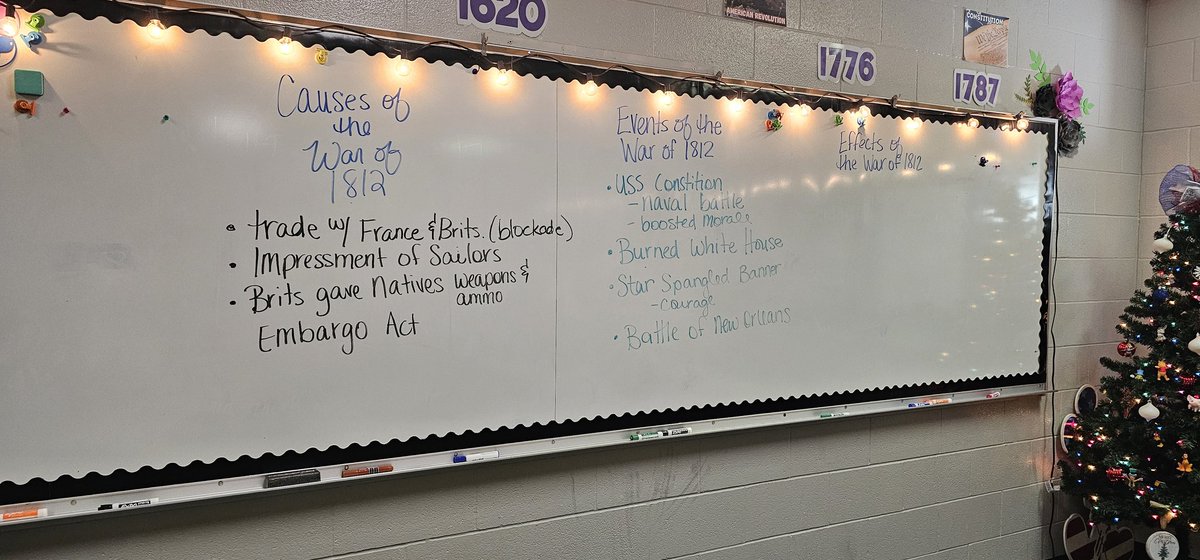 1620
AMERICAN REVOLUTION
CONSTITUTION
1776
1787
Causes of
the
War of
1812
• trade w/ France & Brits. (blockade)
• Impressment of Sailors
• Brits gave Natives weapons &
ammo
Embargo Act
Events of the
War of 1812
• USS Constition
- naval battle
- boosted morale
• Burned White House
• Star Spangled Banner
- courage
• Battle of New Orleans
Effects of
the War of 1812